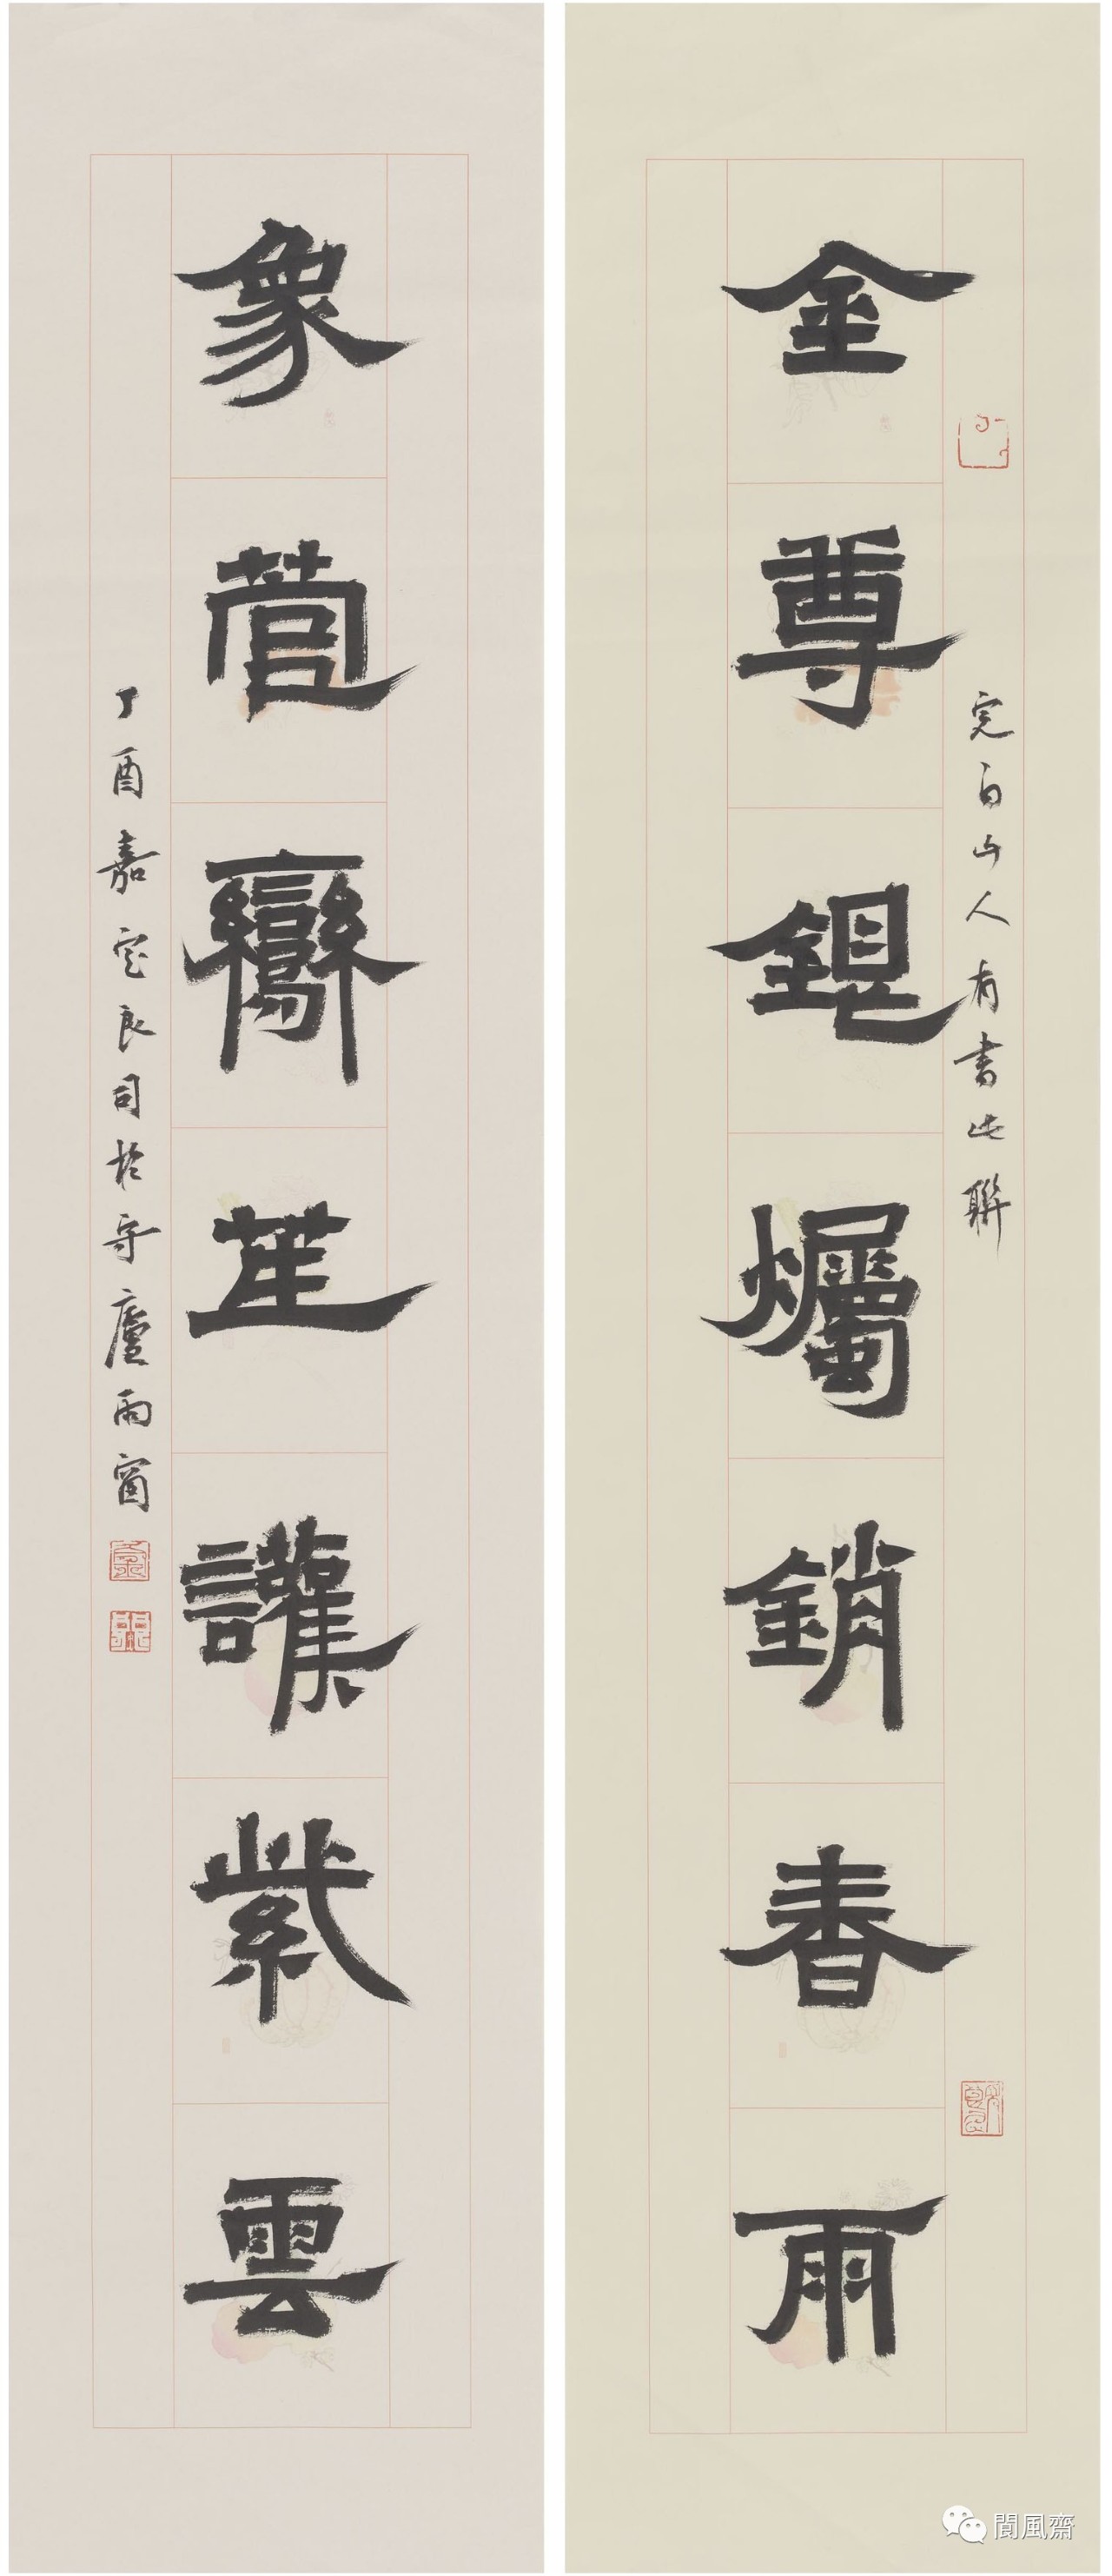 金尊銀爥銷春雨
完白山人有書此聯
象管鸞笙護紫雲
丁酉嘉定良司於守廬雨窗
閬風齋